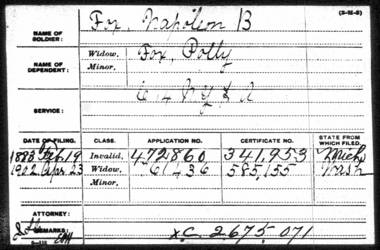 (3-111-8)
NAME OF SOLDIER: Fox, Napoleon B
NAME OF DEPENDENT: Widow, Fox, Polly
Minor,
SERVICE:
DATE OF FILING. CLASS. APPLICATION NO. CERTIFICATE NO. STATE FROM WHICH FILED.
1883 Feb 19 Invalid, 472860 341,953 Mich
1902 Apr 23 Widow, 585,155
Minor,
ATTORNEY:
REMARKS: XC 2675 071